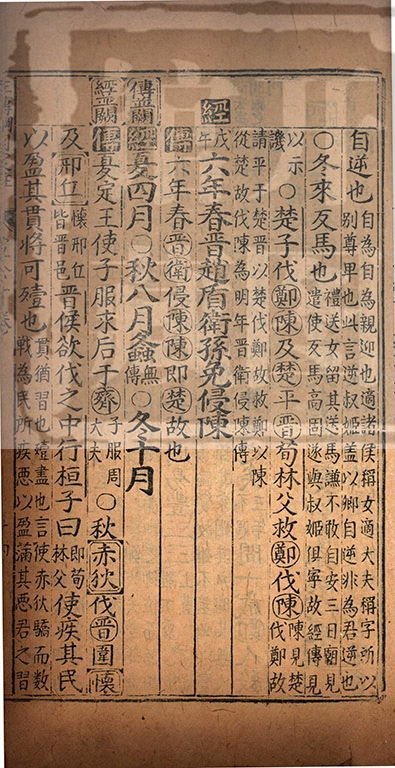 自逆也自為自為親迎也適諸侯稱女適大夫稱字所以別尊卑也此言逆叔姬盖以卿自逆非為君逆也
○冬來反馬也禮送女留其送馬謙不敢自安三日廟見遣使反馬高固遂與叔姬俱寧故經傳見
以示譏○楚子伐鄭陳及楚平晉荀林父救鄭伐陳陳見楚伐鄭故
請平于楚晉以楚伐鄭故救鄭以陳從楚故伐陳為明年晉衛侵陳傳
經戊午六年春晉趙盾衛孫免侵陳
傳六年春晉衛侵陳陳即楚故也
傳盖闕經夏四月○秋八月螽無傳○冬十月
經盖闕傳夏定王使子服求后于齊子服周大夫○秋赤狄伐晉圍懷
及邢丘懷邢丘皆晉邑晉侯欲伐之中行桓子曰即荀林父使疾其民
以盈其貫將可殪也貫猶習也殪盡也言使赤狄驕而數戰為民所疾惡以盈滿其惡君之習